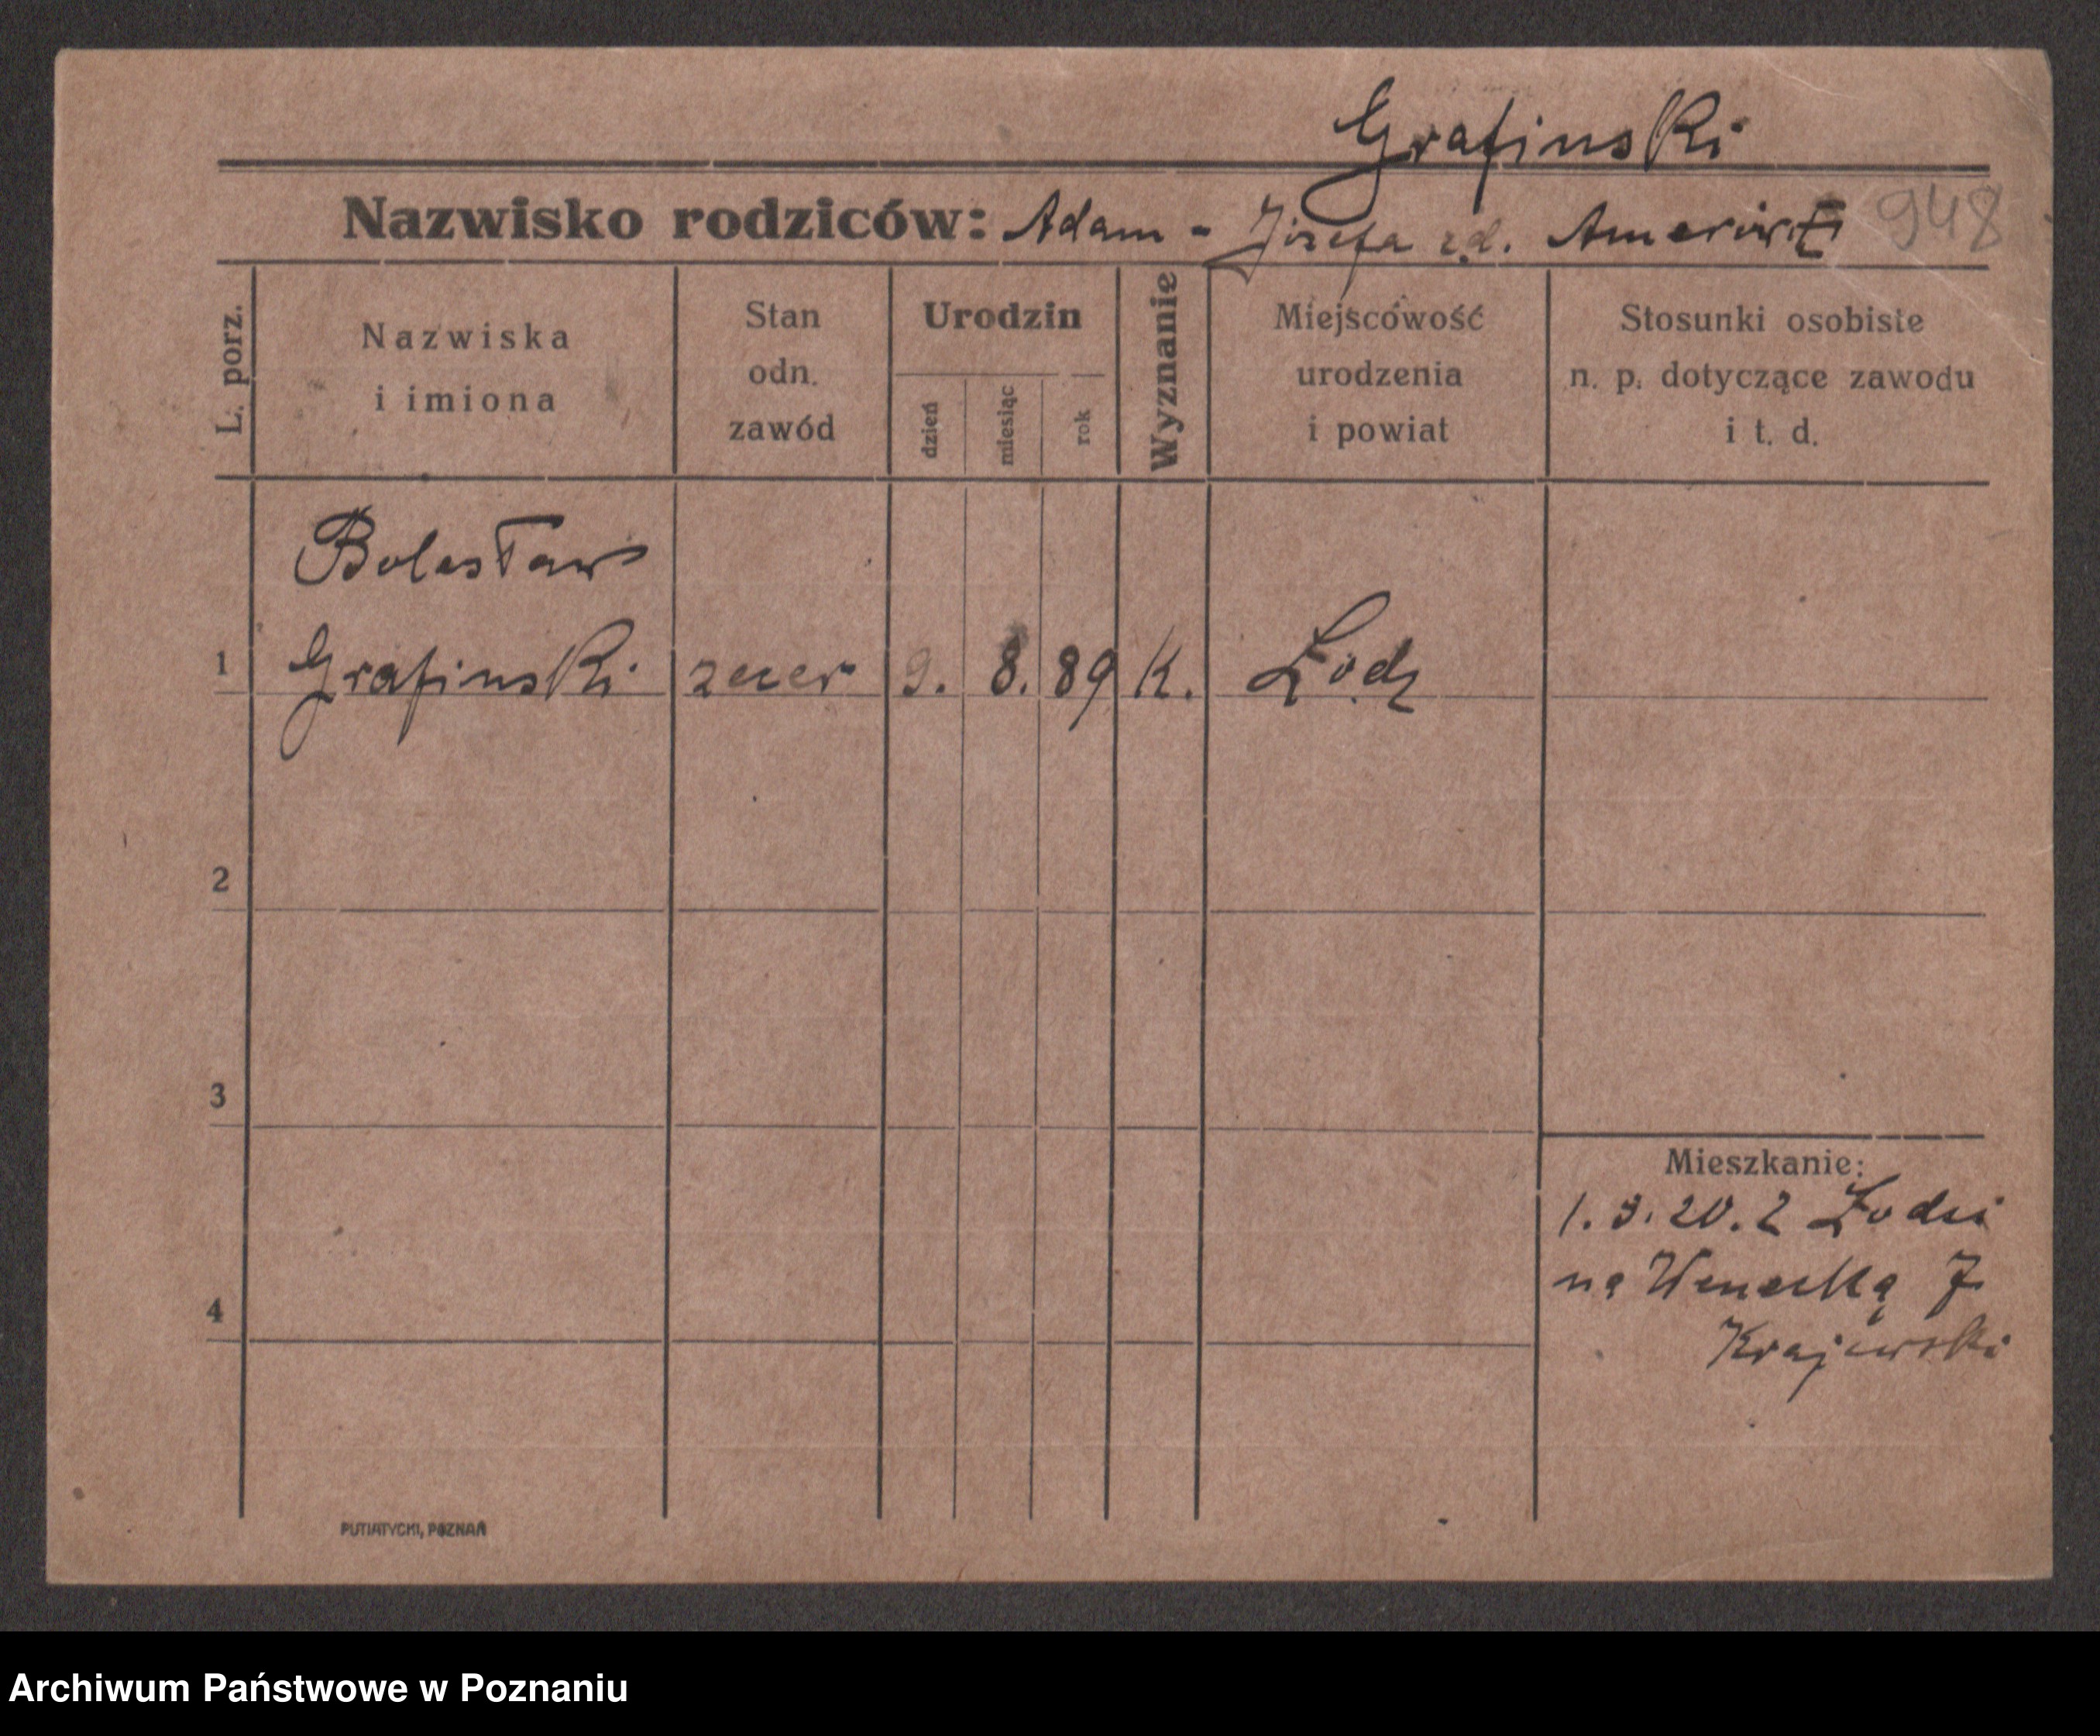 Grafinski
Nazwisko rodziców: Adam - Józefa z d. 948
L. porz.
Nazwiska
i imiona
Stan
odn.
zawód
Urodzin
dzień
miesiąc
rok
Wyznanie
Miejscowość
urodzenia
i powiat
Stosunki osobiste
n. p. dotyczące zawodu
i t. d.
Bolesław
1 Grafinski zecer 9. 8. 89 K. Łodz
2
3
4
Mieszkanie:
1. 3. 20. z Łodzi
na Wenecką 7
Krajewski
PUTIATYCKI, POZNAŃ
Archiwum Państwowe w Poznaniu